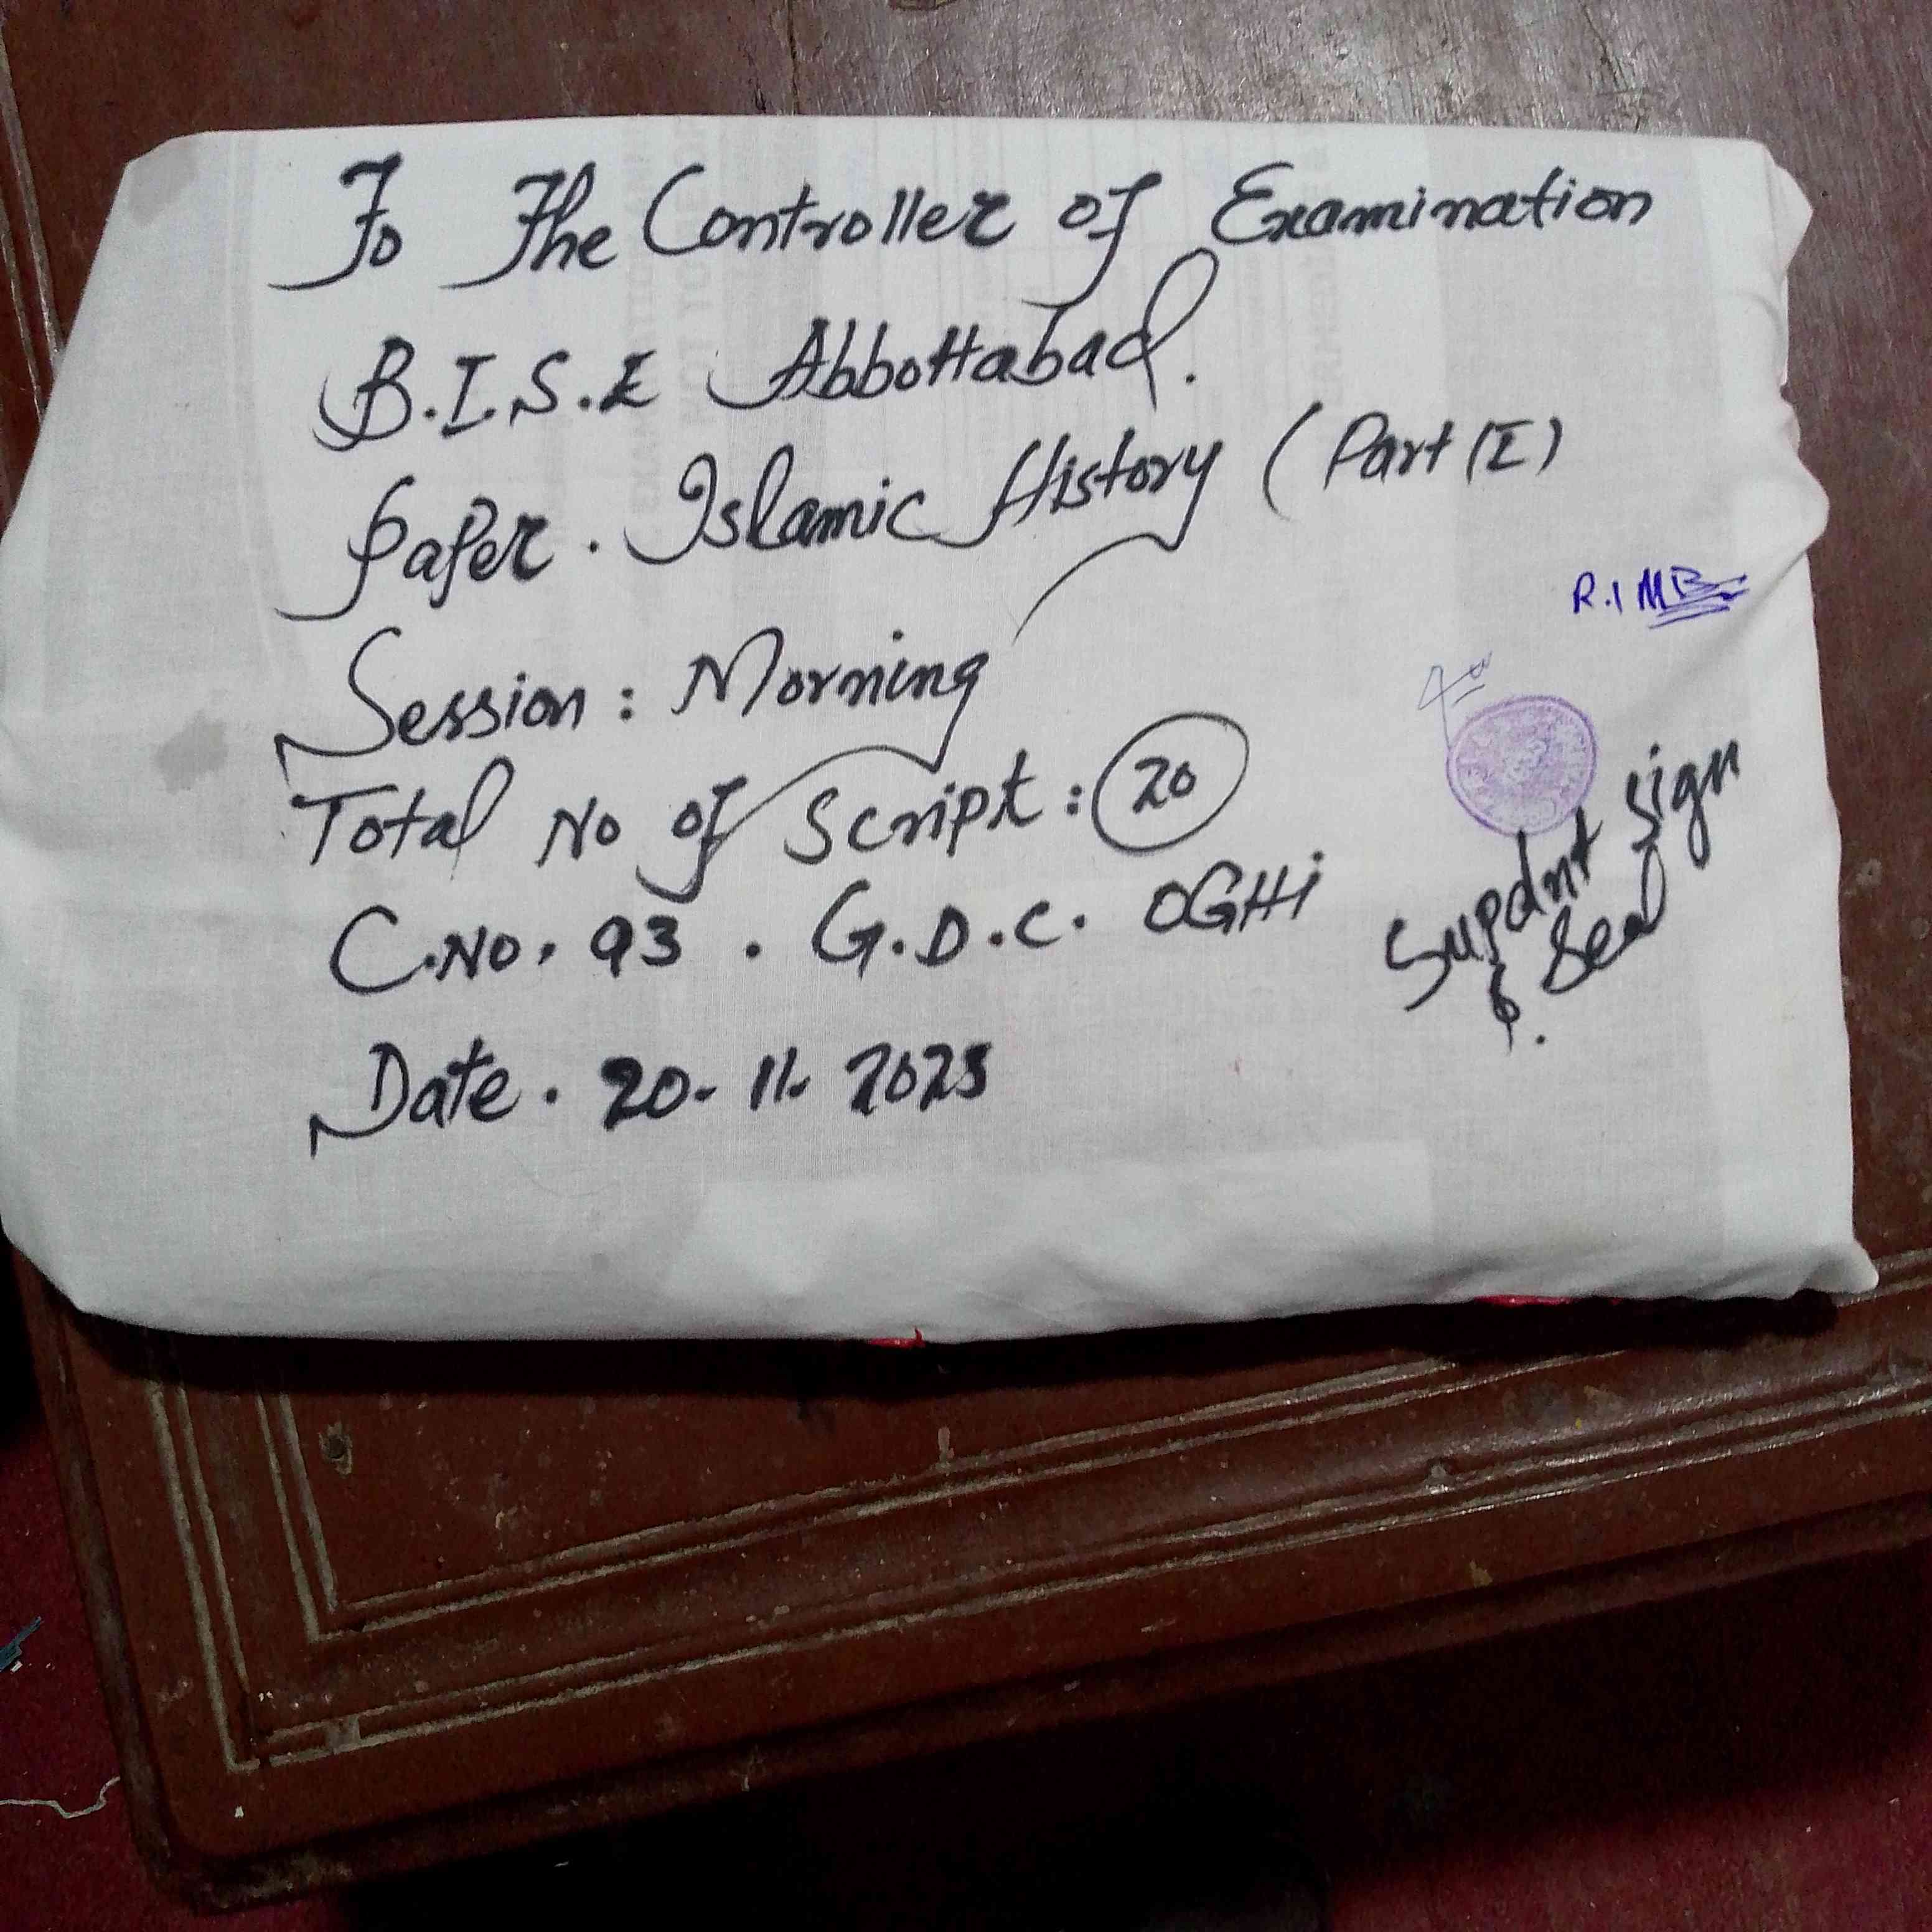 To The Controller of Examination
B.I.S.E Abbottabad.
Paper. Islamic History (Part (I)
Session: Morning
Total No of Script: 20
C.No. 93. G.D.C. OGHi
Date. 20-11-2023
R.I MB
Supdnt Sign
& Seal